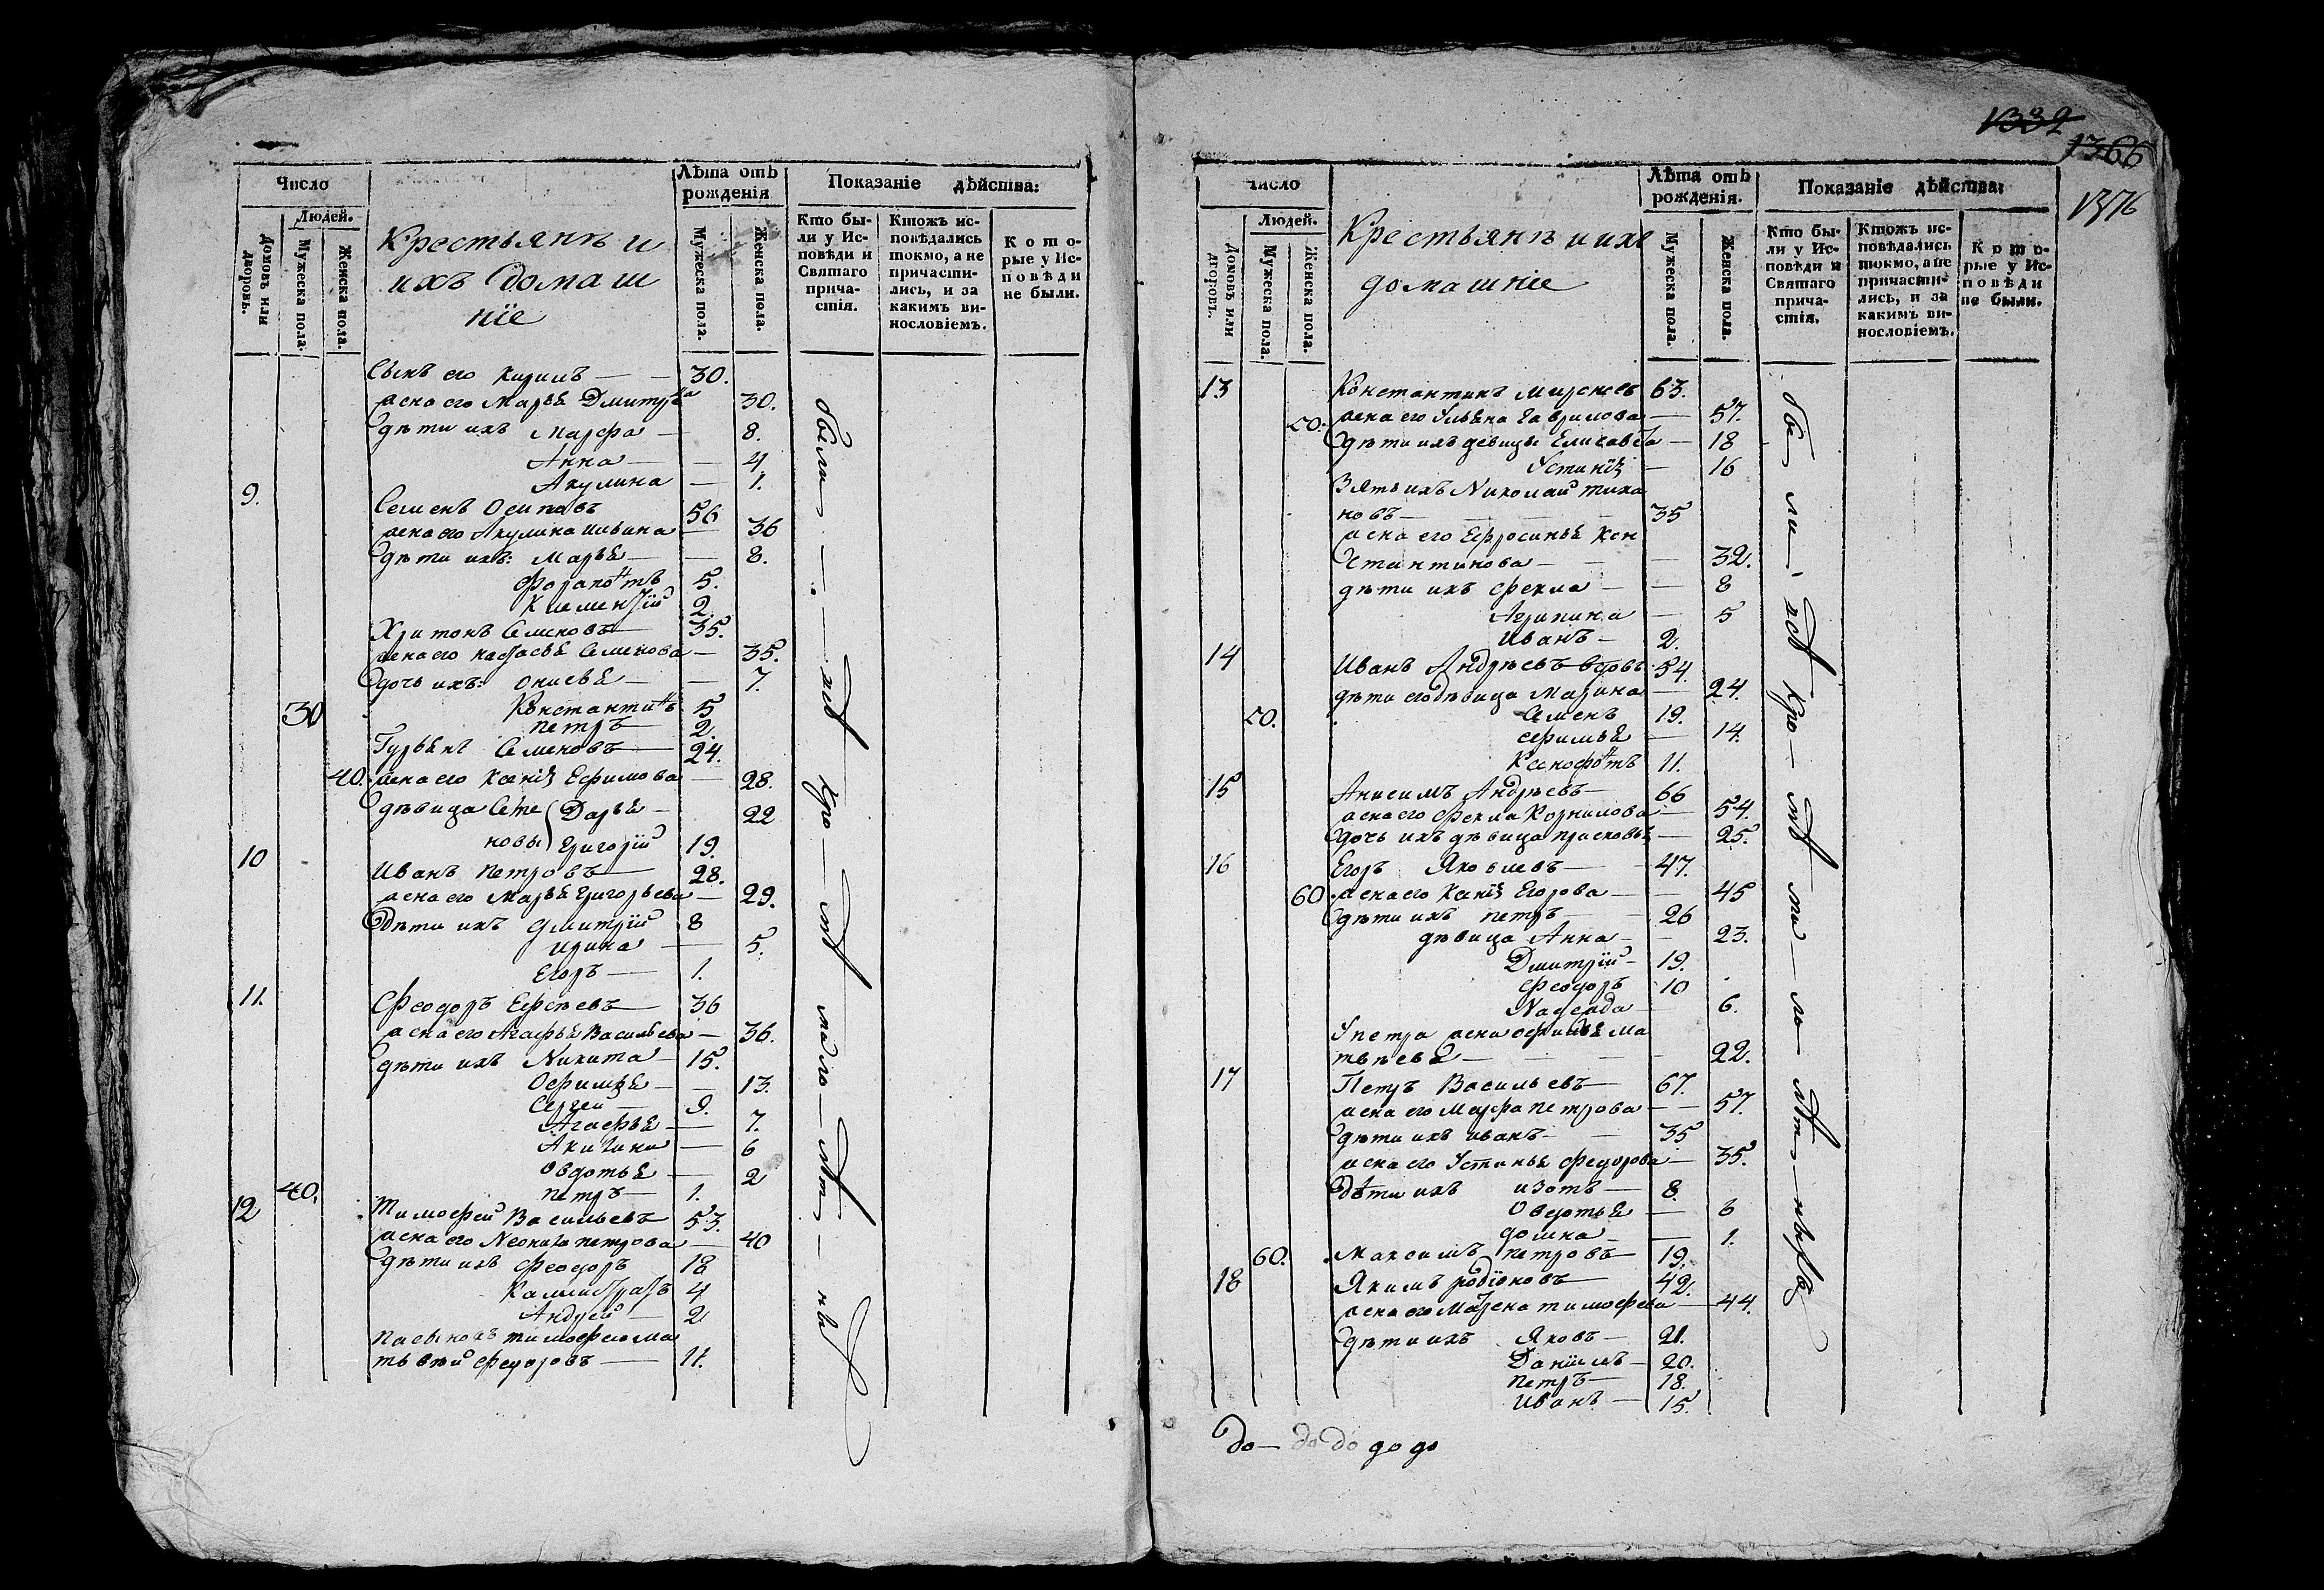 Число
Людей.
Домовъ или дворовъ.
Мужеска пола.
Женска пола.
Крестьянъ и
ихъ домаш
ніе
Лѣта отъ
рожденія
Мужеска пола.
Женска пола.
Показаніе дѣйства:
Кто бы-
ли у Ис-
повѣди и
Святаго
прича-
стія.
Ктожъ ис-
повѣдались
токмо, а не
причасти-
лись, и за
какимъ ви-
нословіемъ.
Кото-
рые у Ис-
повѣди
не были.
Сынъ его Кирилъ — 30.
жена его Марья Дмитріева 30.
дѣти ихъ Марфа — 8.
Анна — 4
Акулина — 1.
9. Семенъ Осиповъ 56
жена его Акулина Ильина — 36
дѣти ихъ: Марья — 8.
Ферапонтъ 5.
Климентій 2.
Харитонъ Семеновъ 35.
жена его Настасья Семенова — 35.
дочь ихъ: Онисья — 7.
Константинъ 5
30 Петръ 2.
Гурьянъ Семеновъ 24.
40. жена его Ксенія Ефимова — 28.
дѣвица Семе Дарья — 22
новы Григорій 19.
10 Иванъ Петровъ 28.
жена его Марья Григорьева — 29.
Дѣти ихъ Дмитрій 8
Ирина — 5.
Егоръ — 1.
11. Феодоръ Ефѣевъ 36
жена его Агафья Васильева — 36.
дѣти ихъ Никита — 15.
Офимья — 13.
Сергей — 9.
Агафья — 7.
6
Овдотья — 2
40. Петръ — 1.
12 Тимофей Васильевъ 53.
жена его Неонила Петрова — 40
дѣти ихъ Феодоръ 18
Каллистратъ 4
Андрей — 2
Пасынокъ Тимофея Ма
тьвѣй Федоровъ — 11.
были
1332
1366
1376
Число
Людей.
Домовъ или дворовъ.
Мужеска пола.
Женска пола.
Крестьянъ и ихъ
домашніе
Лѣта отъ
рожденія.
Мужеска пола.
Женска пола.
Показаніе дѣйства:
Кто бы-
ли у Ис-
повѣди и
Святаго
прича-
стія.
Ктожъ ис-
повѣдались
токмо, а не
причасти-
лись, и за
какимъ ви-
нословіемъ.
Кото-
рые у Ис-
повѣди
не были.
13 Константинъ 63.
50. жена его Ульяна Гаврилова — 57.
дѣти ихъ девицы Елисавета — 18
Устинія — 16
Зять ихъ Николай Тиха
новъ — 35
жена его Ефросинья Кон
стантинова — 32.
дѣти ихъ Фекла — 8
Агрипина — 5
Иванъ — 2.
14 Иванъ Андреевъ вдовъ 54.
дѣти его дѣвица Марина — 24.
50. Семенъ 19.
Офимья — 14.
Ксенофонтъ 11.
15 Анисимъ Андреевъ — 66
жена его Фекла Корнилова — 54.
дочь ихъ дѣвица Прасковья — 25.
16 Егоръ Яковлевъ — 47.
60. жена его Ксенія Егорова — 45
дѣти ихъ Петръ — 26
дѣвица Анна — 23.
Дмитрій — 19.
Феодоръ 10
Надежда 6.
У Петра жена Офимья Ма
твѣева — 22.
17 Петръ Васильевъ — 67.
жена его Марфа Петрова — 57.
дѣти ихъ Иванъ — 35
жена его Устинья Федорова — 35.
Дѣти ихъ Изотъ — 8.
Овдотья — 6
Домна — 1.
60. Максимъ Петровъ — 19.
18 Якимъ Родіоновъ — 42.
жена его Матрена Тимофеева — 44.
дѣти ихъ Яковъ — 21.
Даніилъ — 20.
Петръ — 18.
Иванъ — 15.
бы ли
до — до до до до